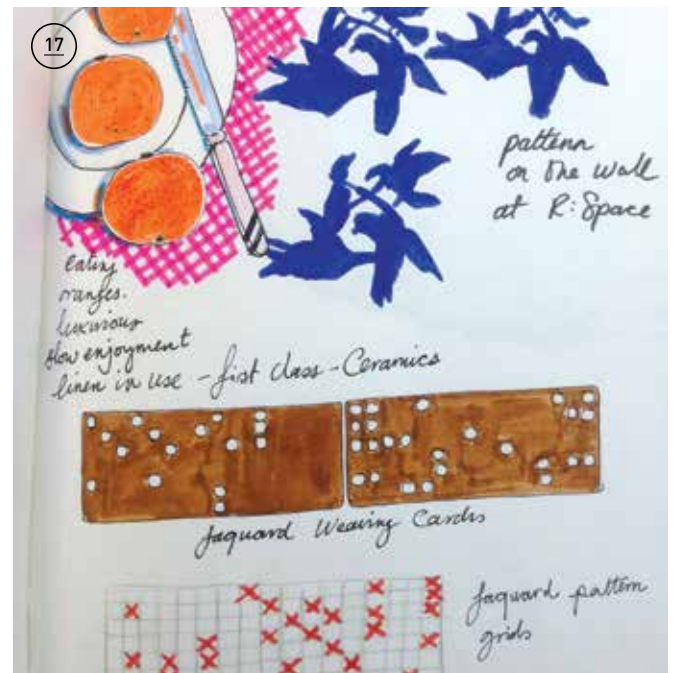 17
pattern
on the wall
at R:Space
eating
oranges.
luxurious
slow enjoyment
linen in use - fist class - Ceramics
Jaquard Weaving Cards
Jaquard pattern
grids